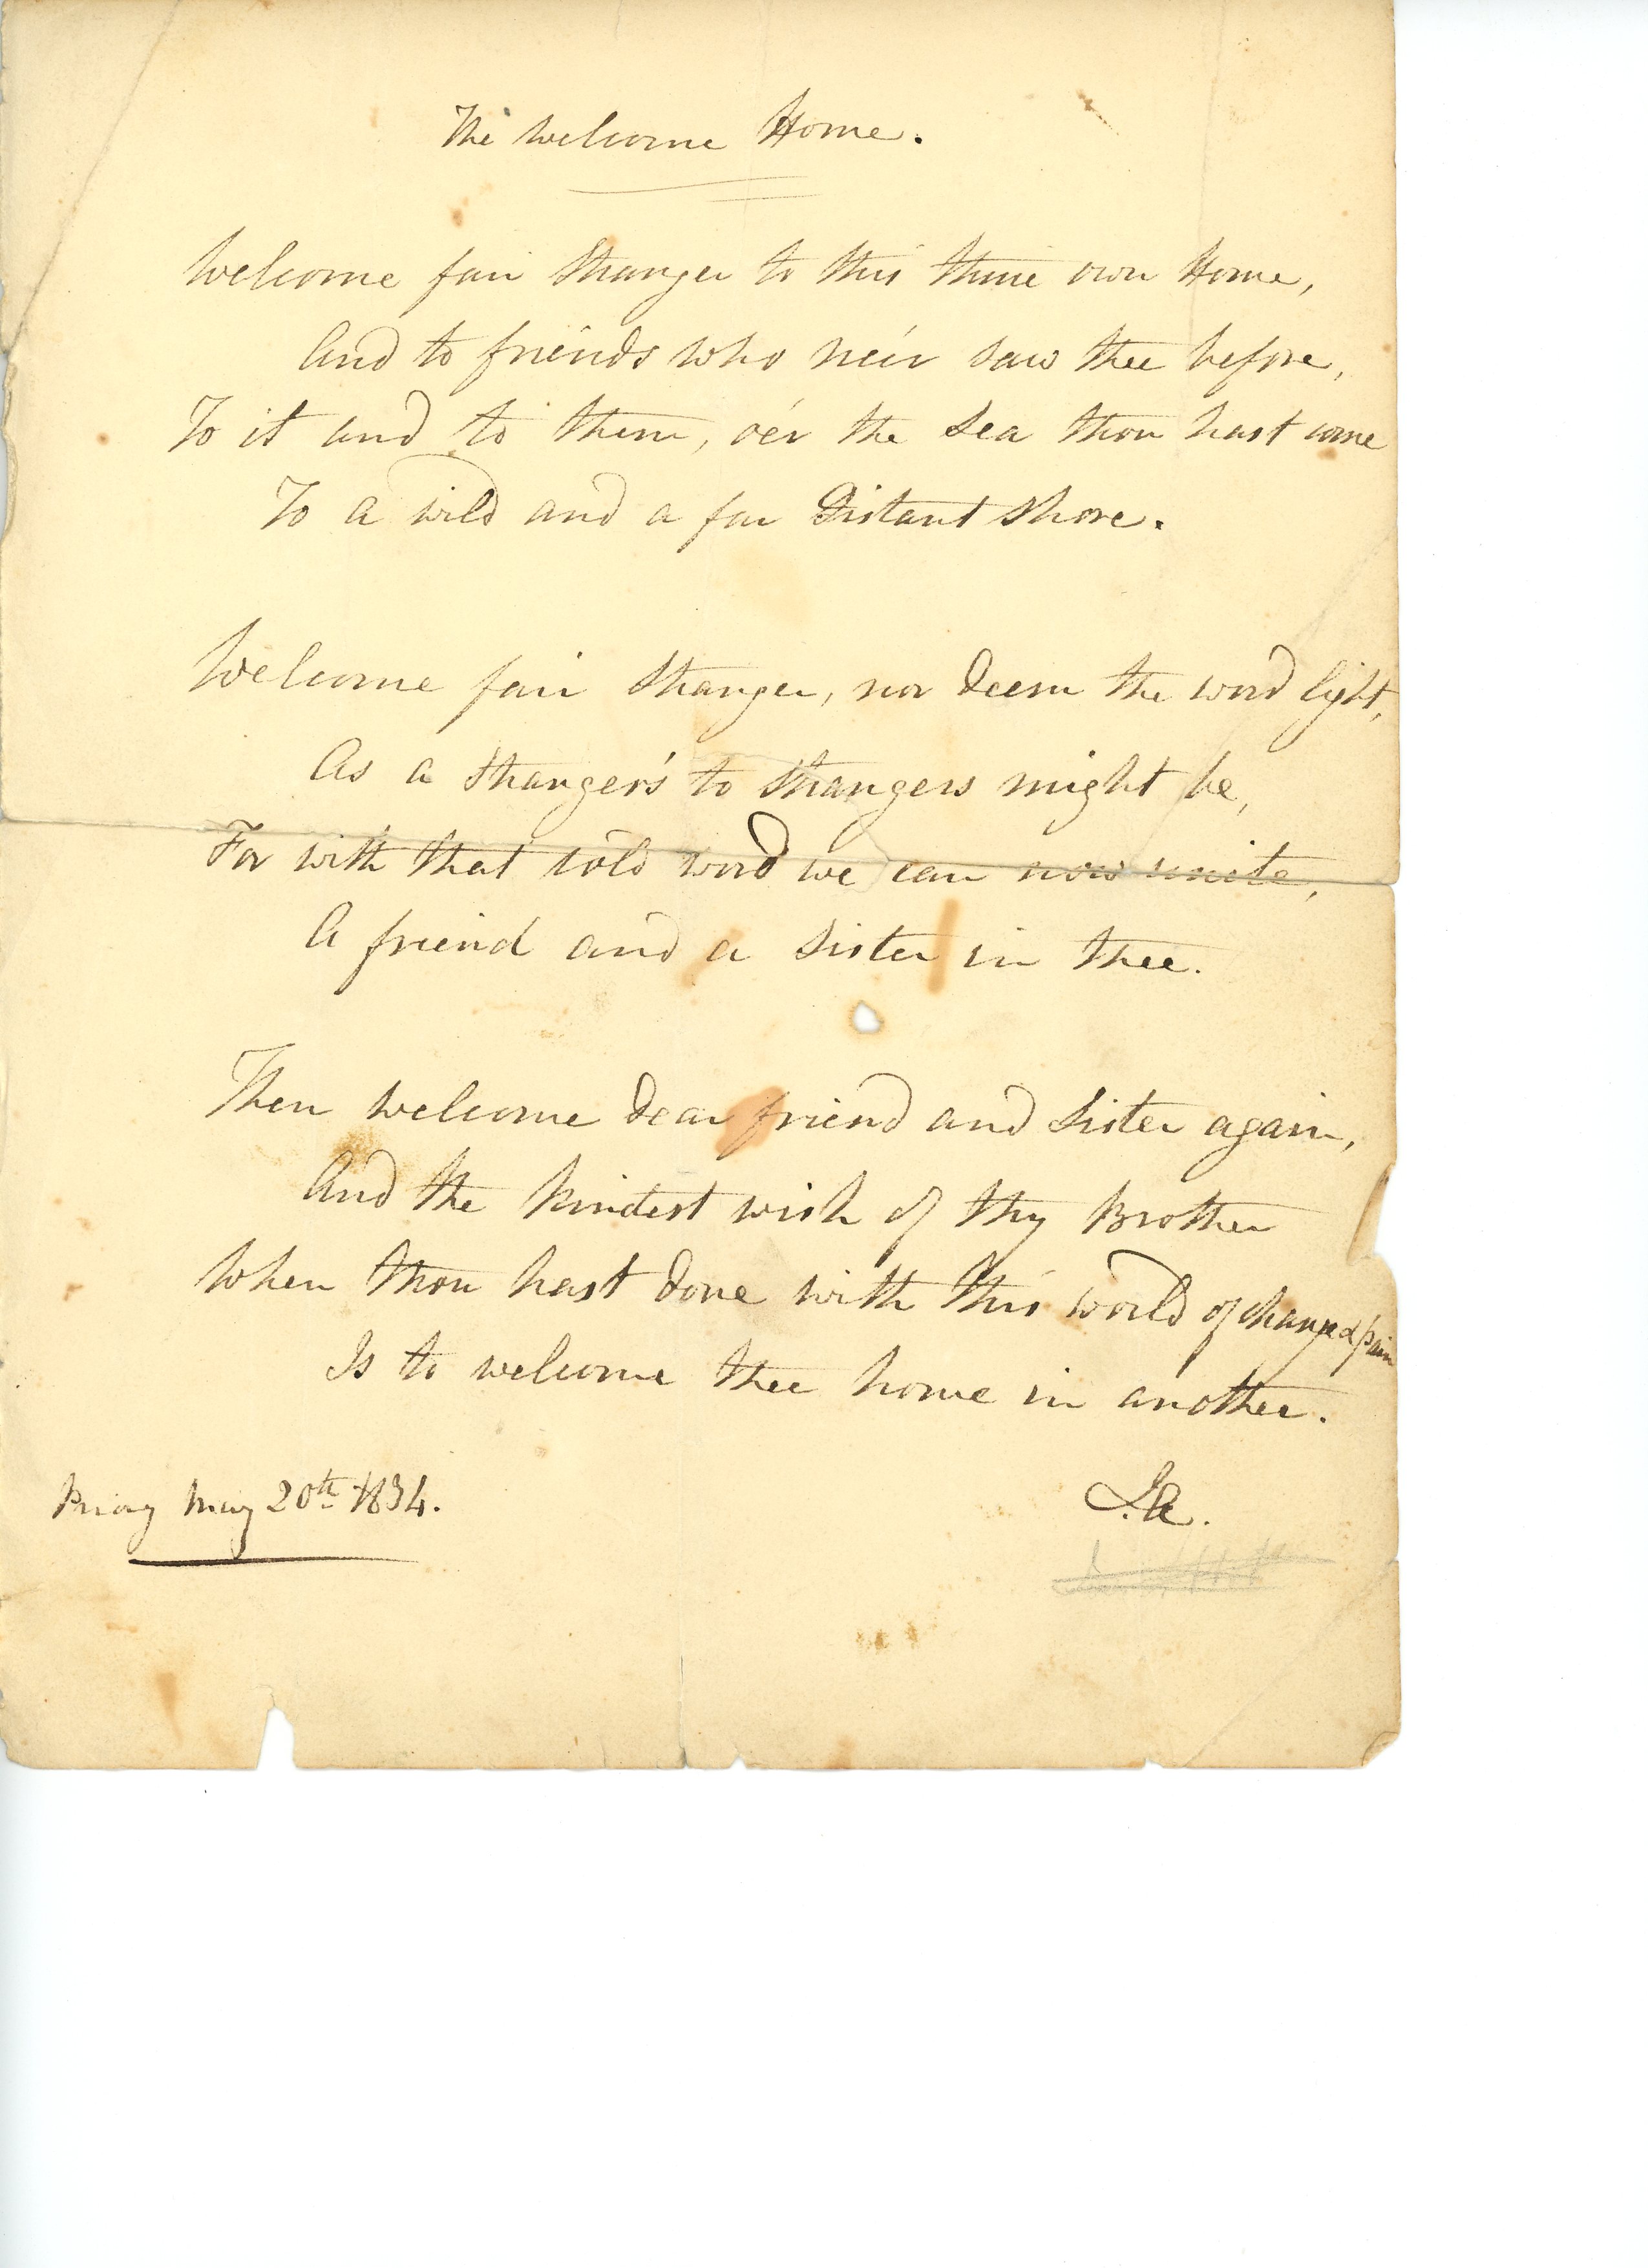 The Welcome Home.
Welcome fair Stranger to this thine own Home,
And to friends who né'er saw thee before,
To it and to them, o'er the Sea thou hast come
To a wild and a far Distant Shore.
Welcome fair Stranger, nor deem the word light,
As a Stranger's to Strangers might be,
For with that cold word we can now unite,
A friend and a Sister in Thee.
Then welcome dear friend and Sister again,
And the kindest wish of thy Brother
When thou hast done with this world of change & pain
Is to welcome thee home in another.
Priory May 20th 1834.